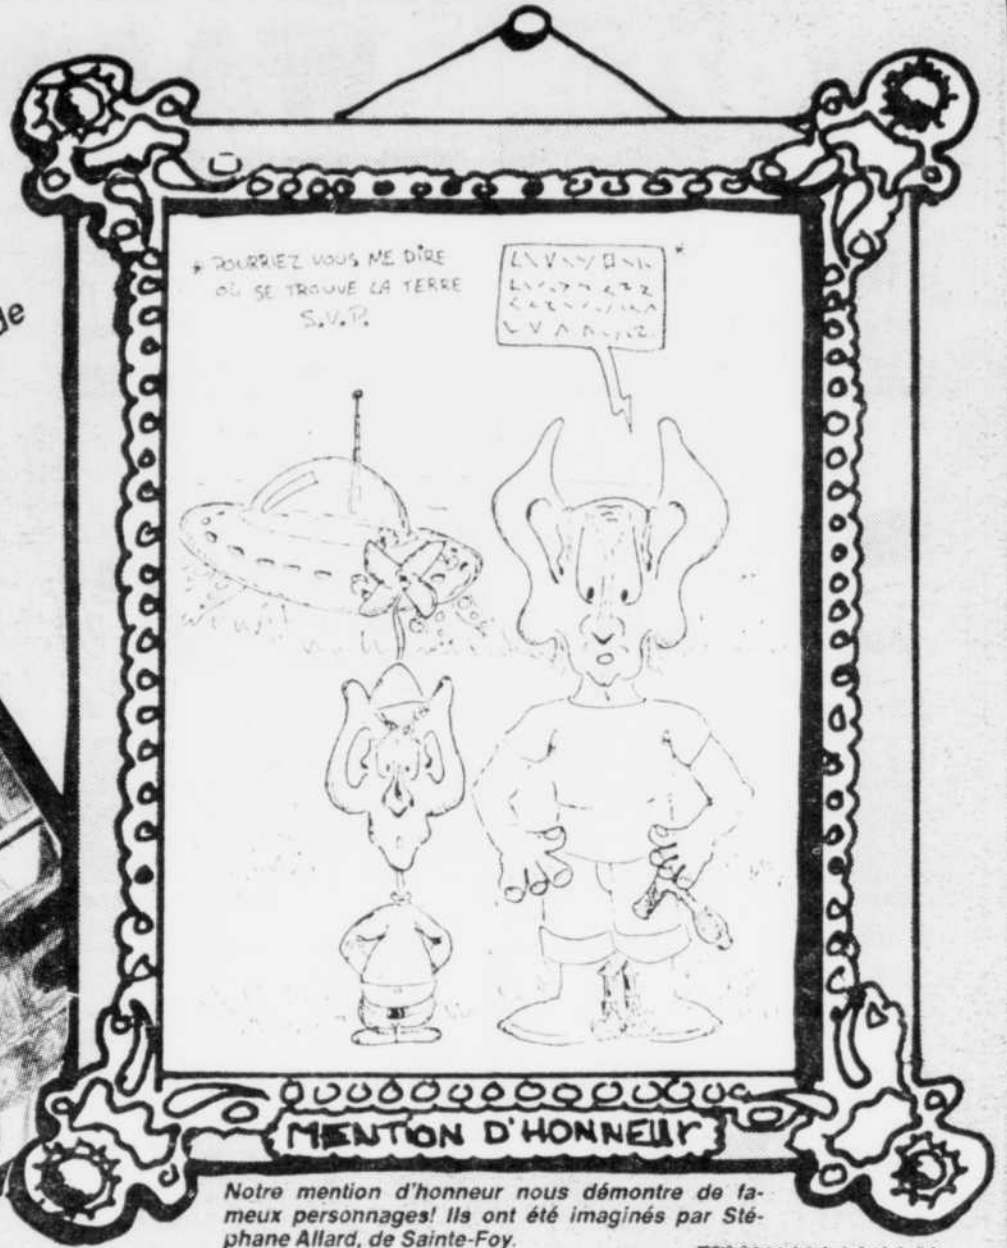 de
* POURRIEZ VOUS ME DIRE
OÙ SE TROUVE LA TERRE
S.V.P.
*
MENTION D'HONNEUr
Notre mention d'honneur nous démontre de fa-
meux personnages! Ils ont été imaginés par Sté-
phane Allard, de Sainte-Foy.